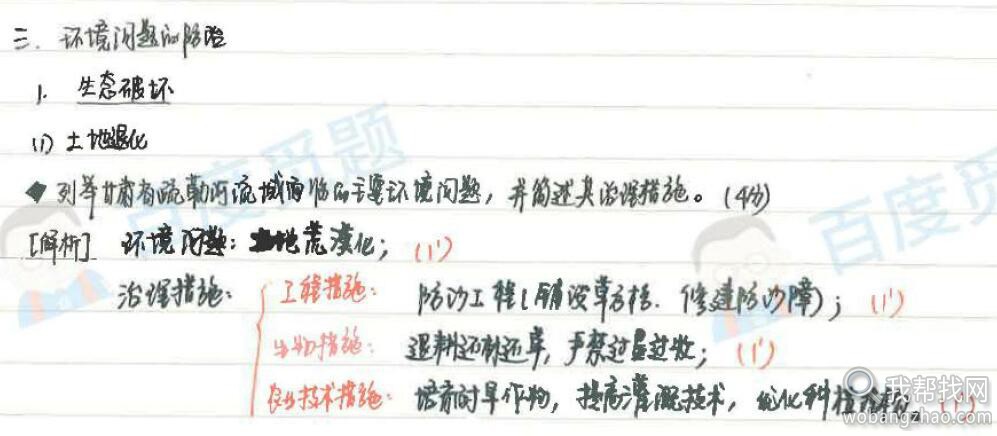 三. 环境问题的防治
1. 生态破坏
(1) 土地退化
◆ 列举甘肃省疏勒河流域面临的主要环境问题，并简述其治理措施。(4分)
[解析] 环境问题：土地荒漠化； (1')
治理措施： 工程措施： 防沙工程(铺设草方格、修建防沙障)； (1')
生物措施： 退耕还林还草，严禁过量过牧； (1')
农业技术措施： 培育耐旱作物，提高灌溉技术，优化种植 (1')
百度觅题
百度觅题
我帮找网
wobangzhao.com